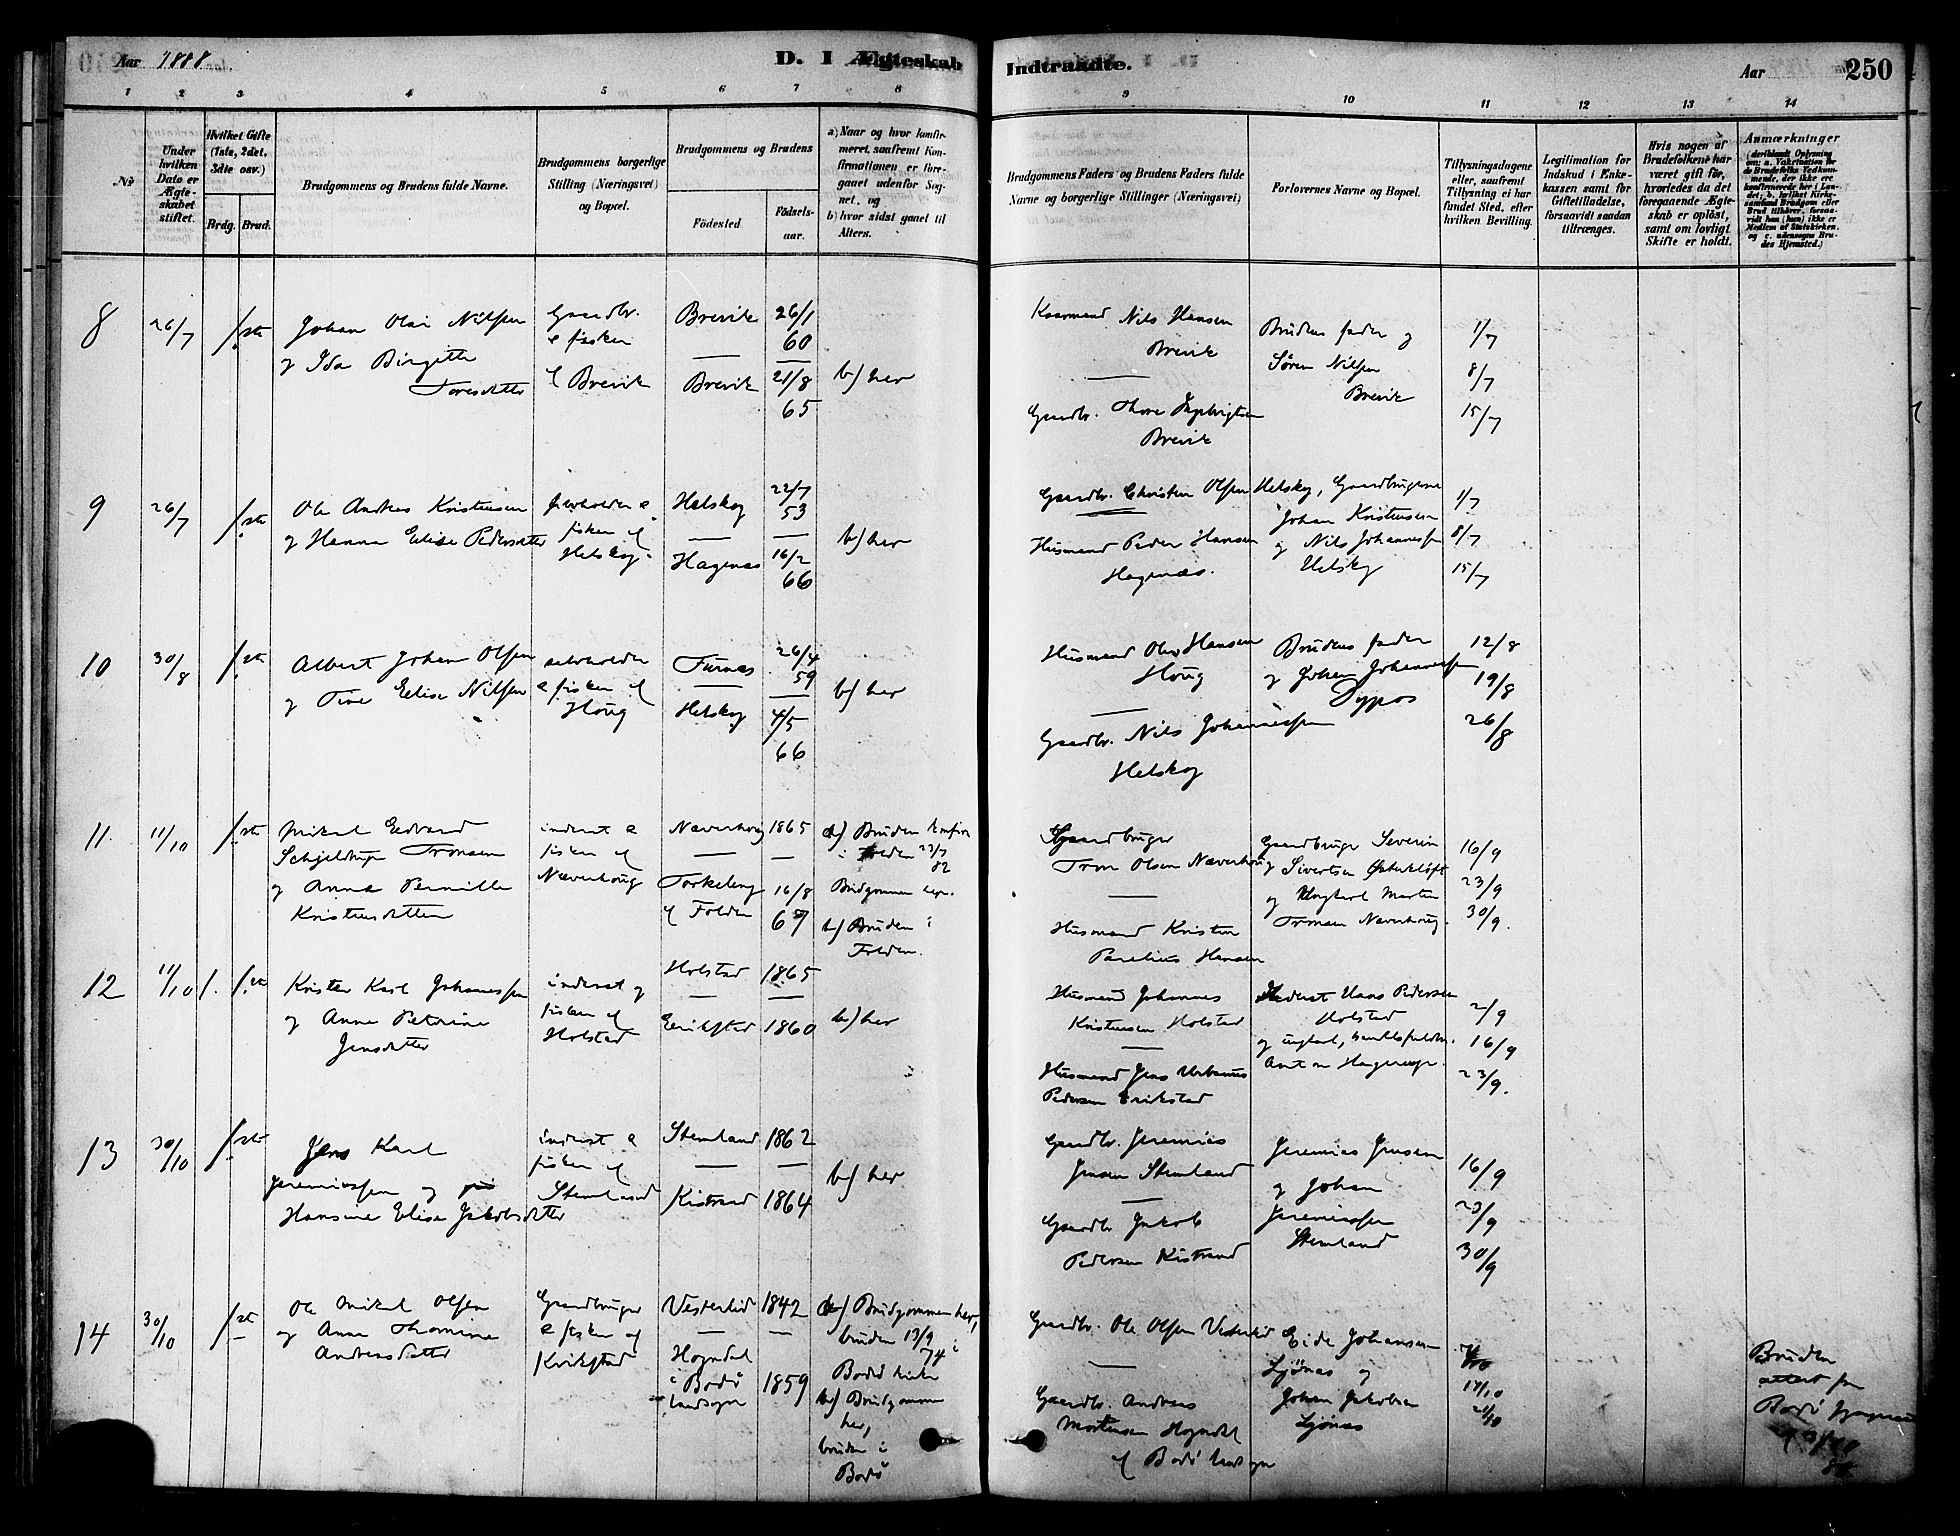 Aar 1888.
D. I Ægteskab Indtraadte.
Aar
250
1 2 3 4 5 6 7 8 9 10 11 12 13 14
No
Under hvilken Dato er Ægteskabet stiftet.
Hvilket Gifte (1ste, 2det, 3die osv.)
Brdg. Brud.
Brudgommens og Brudens fulde Navne.
Brudgommens borgerlige Stilling (Næringsvei) og Bopæl.
Brudgommens og Brudens
Fødested
Fødselsaar.
a) Naar og hvor konfirmeret, saafremt Konfirmationen er foregaaet udenfor Sognet, og
b) hvor sidst gaaet til Alters.
Brudgommens Faders og Brudens Faders fulde Navne og borgerlige Stillinger (Næringsvei)
Forlovernes Navne og Bopæl.
Tillysningsdagene eller, saafremt Tillysning ei har fundet Sted, efter hvilken Bevilling.
Legitimation for Indskud i Enkekassen samt for Giftetilladelse, forsaavidt saadan tiltrænges.
Hvis nogen af Brudefolkene har været gift før, hvorledes da det foregaaende Ægteskab er opløst, samt om lovligt Skifte er holdt.
Anmærkninger
(deriblandt Oplysning om: a. Vakcination for de Brudefolks Vedkommende, der ikke ere konfirmerede her i Landet; b. hvilket Kirkesamfund Brudgom eller Brud tilhører, forsaavidt han (hun) ikke er Medlem af Statskirken, og c. udensogns Brudes Hjemsted.)
8
26/7
1ste
Johan Olai Nilsen
og Ida Birgitte
Toresdatter
Gaardbr.
& fisker
af Brevik
Brevik
Brevik
26/1
60
21/8
65
b) her
Kaarmand Nils Hansen
Brevik
Gaardbr. Thore Ingebrigtsen
Brevik
Brudens fader og
Søren Nilsen
Brevik
1/7
8/7
15/7
9
26/7
1ste
Ole Andreas Kristensen
og Hanna Elise Pedersdatter
fisker af
Helskog
Helskog
Hagenæs
22/7
53
16/2
66
b) her
Gaardbr. Christen Olsen Helskog,
Husmand Peder Hansen
Hagenæs.
Gaardbrugerne
Johan Kristensen
og Nils Johannessen
Helskog
1/7
8/7
15/7
10
30/8
1ste
Albert Johan Olsen
og Tine Elise Nilsen
selveholder
& fisker af
Houg
Furnes
Helskog
26/4
59
4/5
66
b) her
Husmand Ole Hansen
Houg
Gaardbr. Nils Johannessen
Helskog
Brudens fader
og Johan Johannessen
12/8
19/8
26/8
11.
11/10
1ste
Mikal Edvard
Schjeldrup Tronsen
og Anna Pernille
Kristensdatter
inderst &
fisker af
Næverhoug
Næverhoug
af Folden
1865
16/8
67
a) Bruden konfirm
i Folden 23/7
82
Brudgommen her.
b) Bruden i
Folden.
Gaardbruger
Tron Olsen Næverhoug
Husmand Kristen
Parelius Hansen
Gaardbruger Severin
Sivertsen Østerkløft
og Ungkarl Morten
Tronsen Næverhoug.
16/9
23/9
30/9.
12
11/10
1.
1ste
Krister Karl Johannessen
og Anne Petrine
Jensdatter
inderst og
fisker af
Holstad
Holstad
Erikstad
1865
1860
b) her
Husmand Johannes
Kristensen Holstad
Husmand Jens Urbanus
Pedersen Erikstad
Inderst Hans Pedersen
Holstad
og ungkarl,
Anton Hagerup.
2/9
16/9
23/9.
13
30/10
1ste
Jens Karl
Jeremiassen og
Hansine Elise Jakobsdatter
inderst &
fisker af
Stemland
Stemland
Kistrand
1862
1864
b) her
Gaardbr. Jeremias
Jensen Stemland
Gaardbr Jakob
Pedersen Kistrand
Jeremias Jensen
og Johan
Jeremiassen
Stemland
16/9
23/9
30/9
14
30/10
1ste
Ole Mikal Olsen
og Anne Thomine
Andreasdatter
Gaardbruger
& fisker af
Kvikstad
Vesterlid
Hogndal
i Bodø
landsogn
1842
1859
a) Brudgommen her,
bruden 13/9
74 i
Bodø kirke
b) Brudgommen
her,
bruden i
Bodø
Gaardbr. Ole Olsen Vesterlid
Gaardbr. Andreas
Mortensen Hogndal
af Bodø landsogn
Eide Johansen
Ljønæs og
Johan Jakobsen
Ljønæs
14/10
21/10
Bruden
attest fra
Bodø